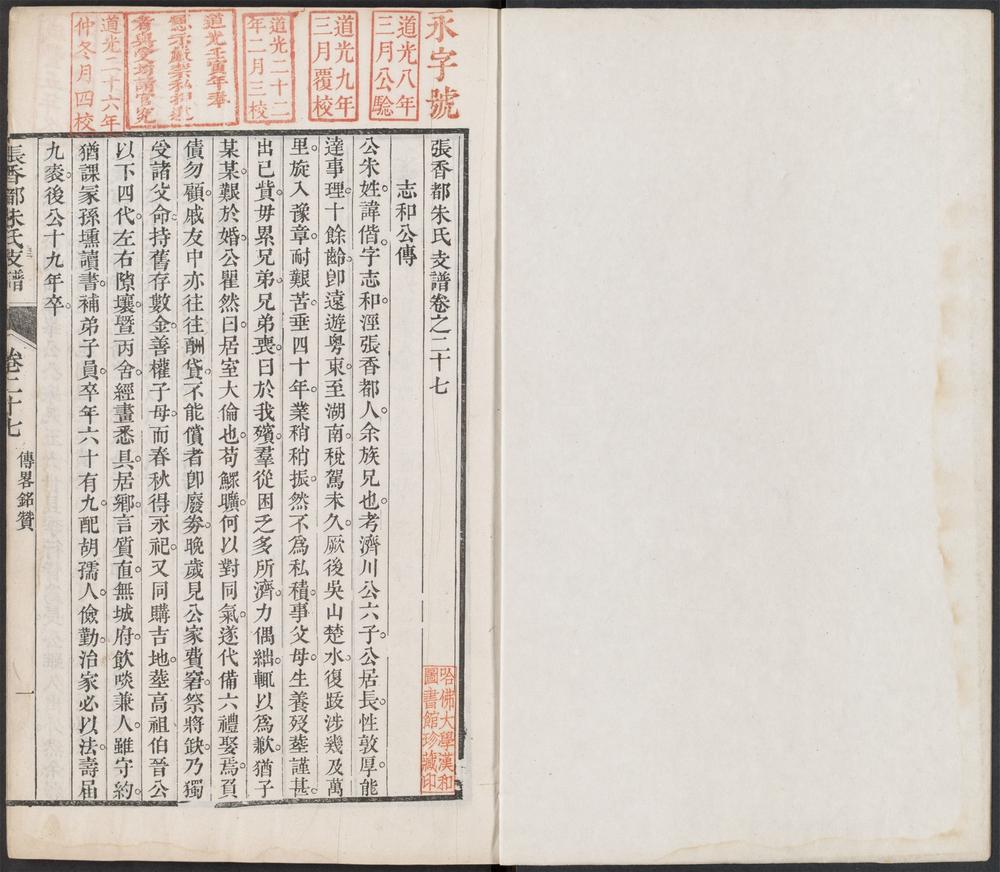 永字號
道光八年
三月公驗
道光九年
三月覆校
道光二十二
年二月三校
道光壬寅年奉
憲示嚴禁私和遺
者與受均請官究
道光二十六年
仲冬月四校
張香都朱氏支譜卷之二十七
志和公傳
公朱姓。諱偕字志和。涇張香都人。余族兄也。考濟川公六子。公居長。性敦厚。能
達事理。十餘齡卽遠遊粵東。至湖南。稅駕未久。厥後吳山楚水。復跋涉幾及萬
里。旋入豫章。耐艱苦垂四十年。業稍稍振。然不為私積。事父母生養歿塟謹甚。
出已貲。毋累兄弟。兄弟喪。曰於我殯。羣從困乏多所濟。力偶絀。輒以為歉。猶子
某某。艱於婚。公瞿然曰。居室大倫也。苟鰥曠。何以對同氣。遂代備六禮娶焉。負
債勿顧。戚友中亦往往酬貸。不能償者。卽廢券。晚歲見公家費窘。祭將缺。乃獨
受諸父命。持舊存數金。善權子母。而春秋得永祀。又同購吉地。塟高祖伯晉公
以下四代。左右隙壤。暨丙舍經畫悉具。居鄉。言質直。無城府。飲啖兼人。雖守約。
猶課冢孫壎讀書。補弟子員。卒年六十有九。配胡孺人。儉勤。治家必以法。壽屆
九袠。後公十九年卒。
張香都朱氏支譜
卷二十七
傳畧銘贊
一
哈佛大學漢和
圖書館珍藏印